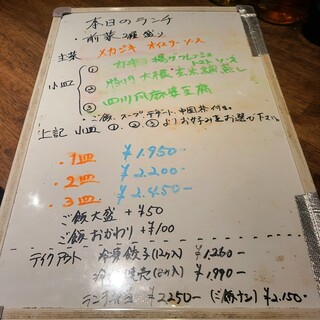 本日のランチ
・前菜2種盛り
主菜 メカジキ オイスターソース
小皿 ① カキ 揚げ トマトソース
② 豚肉 大根 蒸し
③ 四川風麻婆豆腐
・ご飯、スープ、デザート、中国茶付き。
上記 小皿 ①、②、③よりお好みをお選び下さい。
・1皿 ¥1.950-
・2皿 ¥2.200-
・3皿 ¥2.450-
ご飯大盛 +¥50
ご飯おかわり +¥100
テイクアウト 冷凍餃子(12ヶ入) ¥1.260-
¥1.990-
ランチ ¥2250- (ご飯ナシ) ¥2.150-